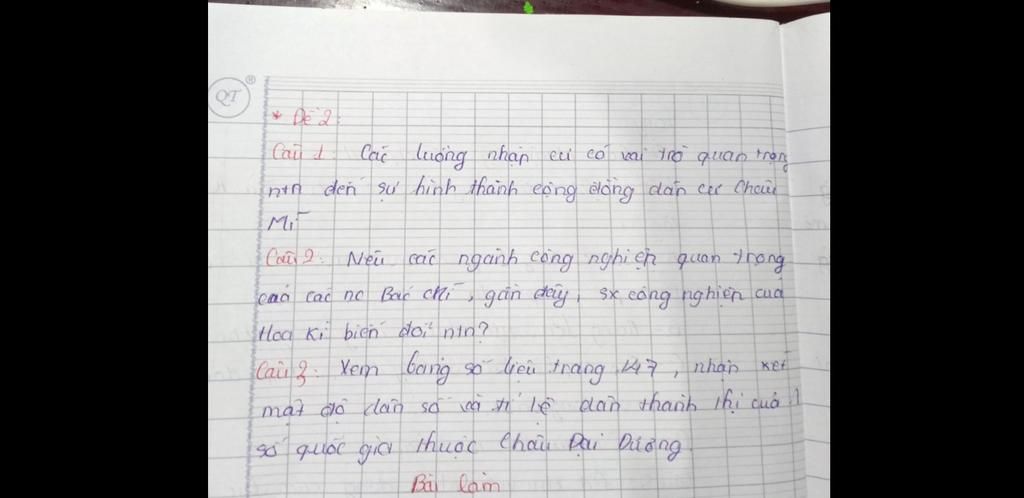 QT ®
* Đề 2:
Câu 1: Các luồng nhập cư có vai trò quan trọng
ntn đến sự hình thành cộng đồng dân cư Châu
Mĩ
Câu 2: Nêu các ngành công nghiệp quan trọng
của các nc Bắc Mĩ, gần đây, sx công nghiệp của
Hoa Kì biến đổi ntn?
Câu 3: Xem bảng số liệu trang 147, nhận xét
mật độ dân số và tỉ lệ dân thành thị của 1
số quốc gia thuộc Châu Đại Dương.
Bài làm